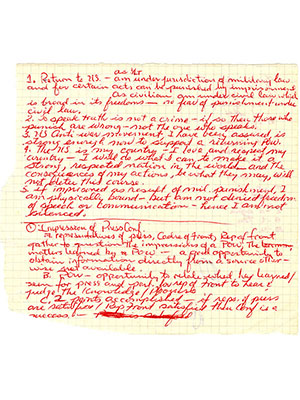 as Mr
1. Return to U.S. - am under jurisdiction of military law
and for certain acts can be punished by imprisonment
As civilian am under civil law which
is broad in its freedoms - no fear of punishment under
civil law.
2. To speak truth is not a crime - if so then those who
punish are wrong - not the one who speaks.
3. US Anti war movement I have been assured is
strong enough now to support a returning
4. The US is my country - I love and respect my
country. I will do what I can to make it a
strong, respected nation in the world and the
consequences of my actions, be what they may, will
not alter that course.
5. If imprisoned as result of mil. punishment, I
am physically bound - but am not denied freedom
of speech or communication - hence I am not
silenced.
① Impression of Press Conf
a. representatives of press, Cadre of front, Rep of front
gather to question the impressions of a POW. The
matters learned by a POW - a good opportunity to
obtain information directly from a source
were not available.
B. POW - opportunity to relate what he learned/
seen for press and for rep of front to hear &
judge the "knowledge / progress"
C. 2 points accomplished - if reps. of press
are satisfied / Rep front satisfied then Conf is a
success. -